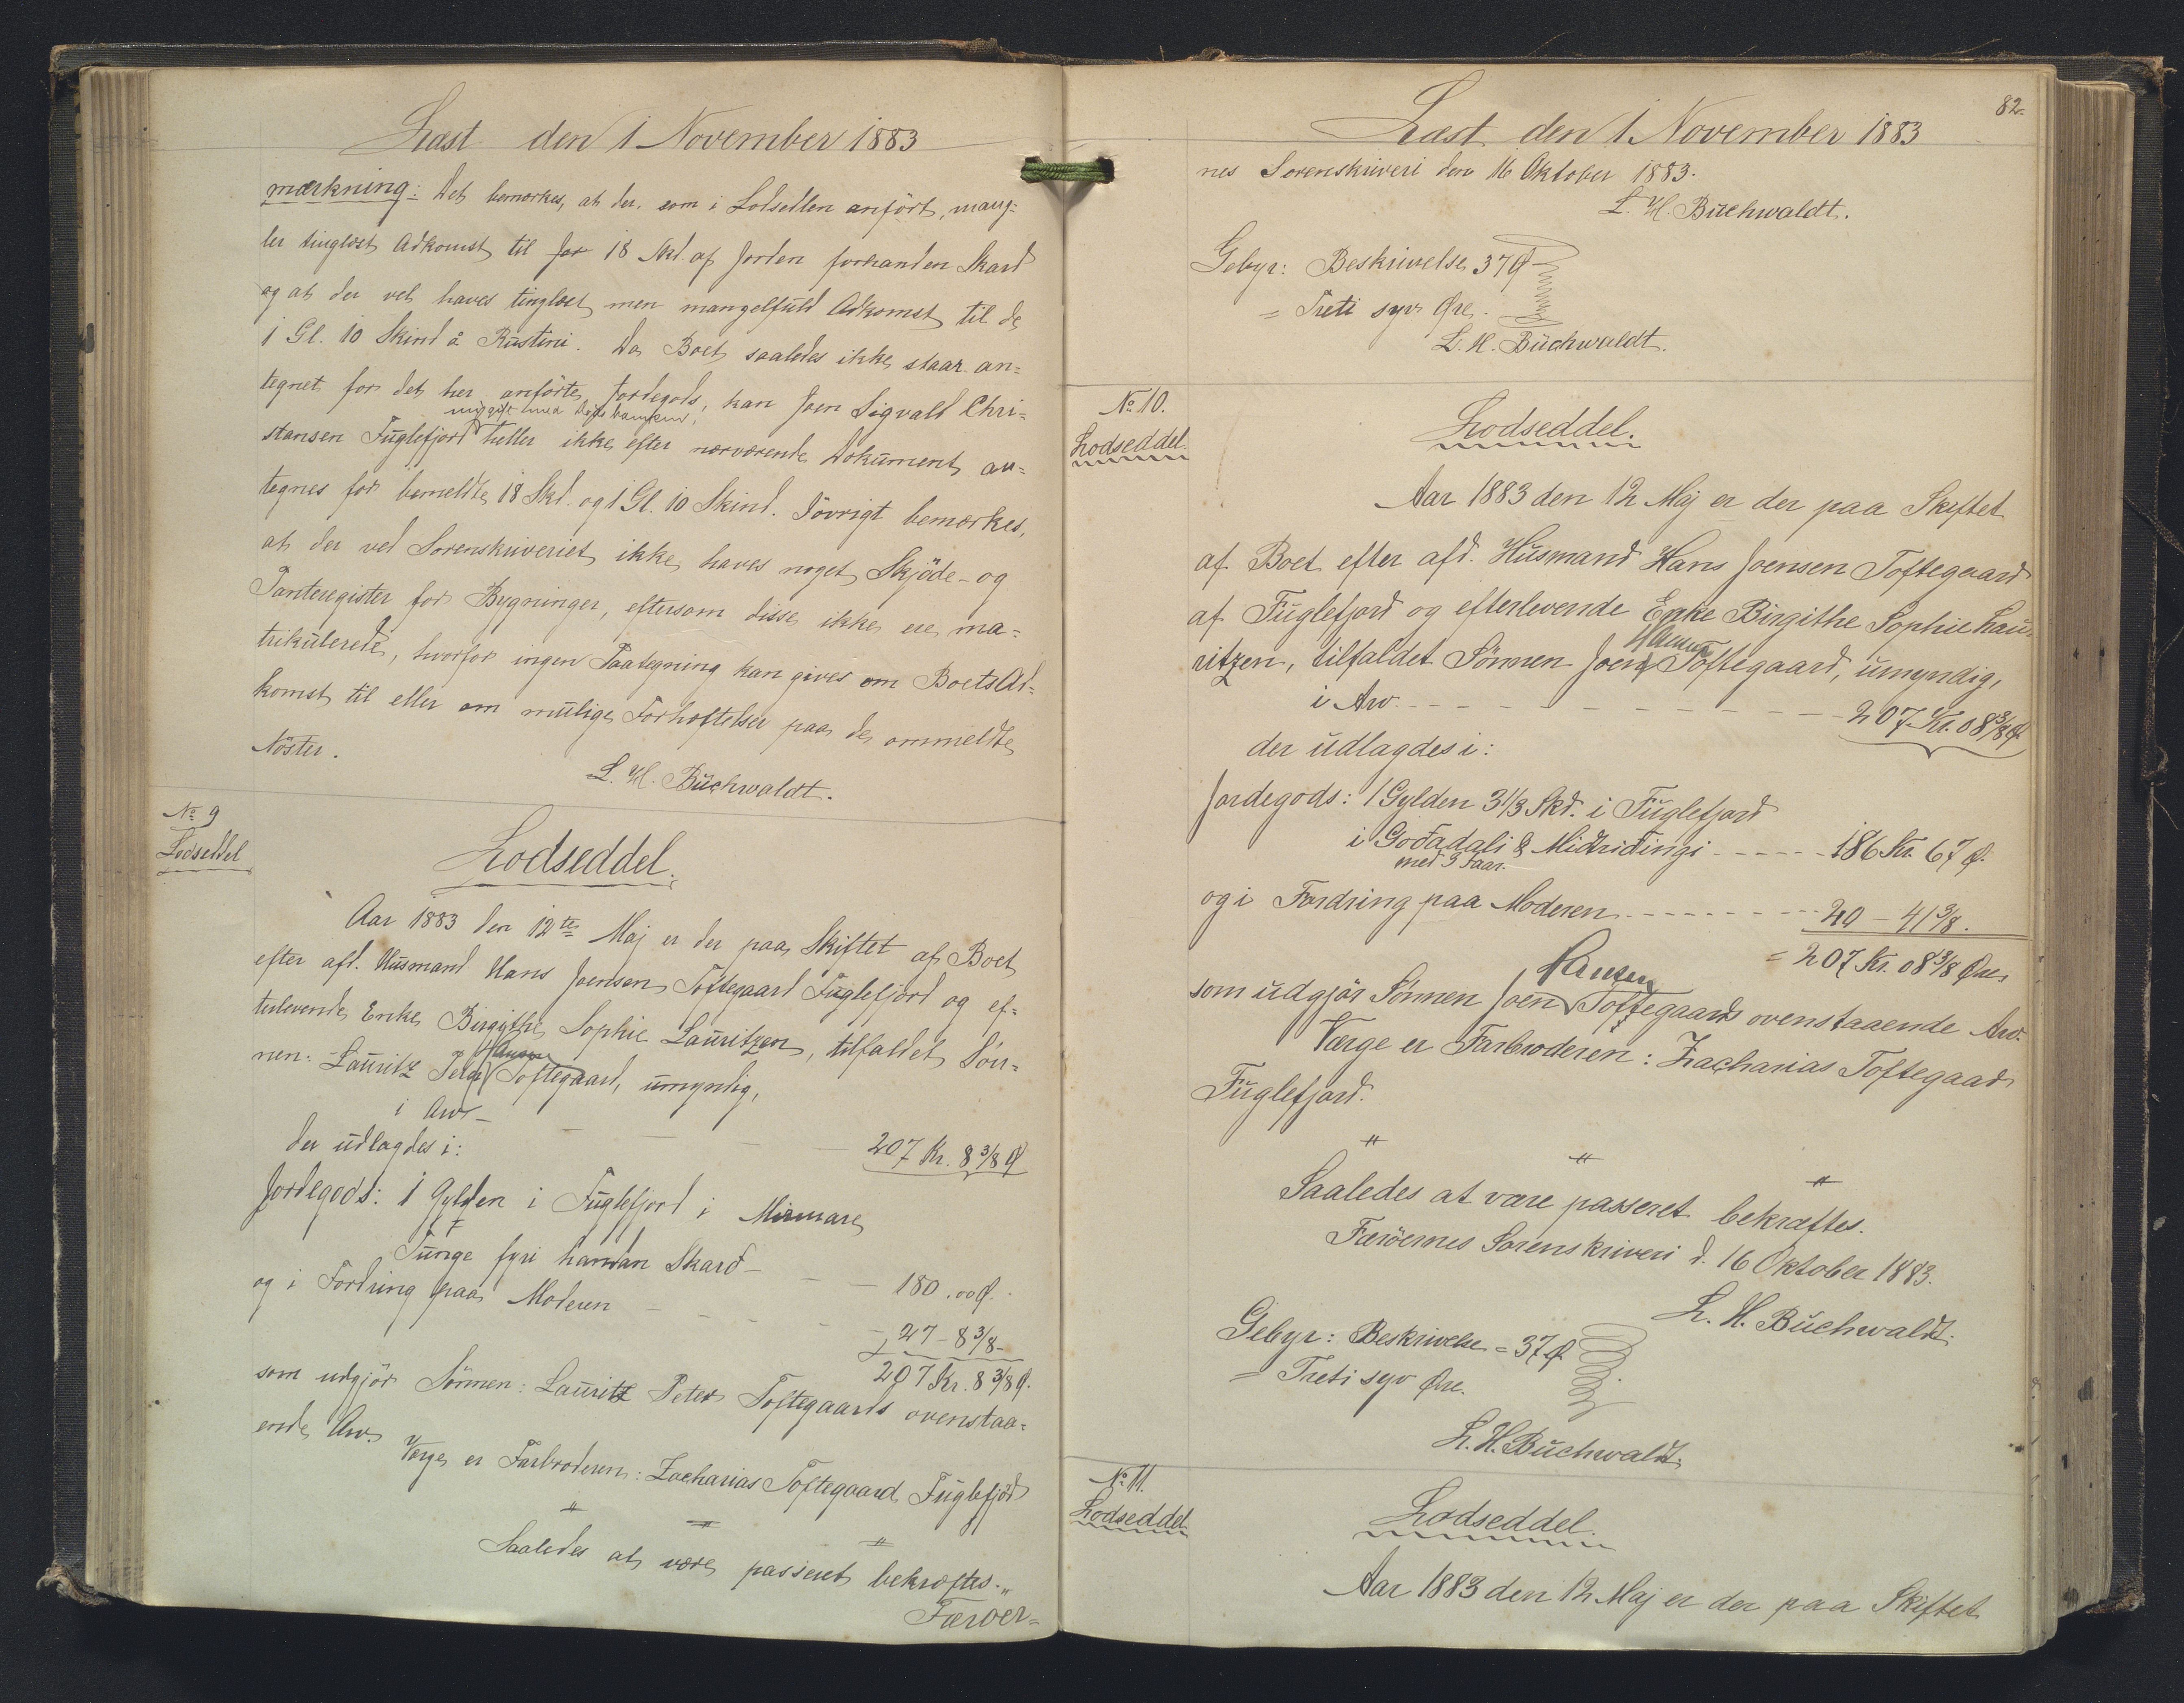 Læst den 1 November 1883
mærkning: Det bemærkes, at der, som i Lodsedlen anført, mang=
ler tinglæst Adkomst til for 18 Skd. af Jorden forhanden Skard
og at der vel haves tinglæst men mangelfuld Adkomst til de
1 Gl. 10 Skind å Rustini. Da Boet saaledes ikke staar an=
tegnet for det her anførte Jordegods, kan Joen Sigvald Chri=
stansen Fuglefjord heller ikke efter nærværende Dokument an=
tegnes for bemeldte 18 Skd. og 1 Gl. 10 Skind. Iøvrigt bemærkes,
at der ved Sorenskriveriet ikke haves noget Skjøde- og
Panteregister for Bygninger, eftersom disse ikke ere ma=
trikulerede, hvorfor ingen Paategning kan gives om Boets Ad=
komst til eller om mulige Forhæftelser paa de ommeldte
Nøster.
L. H. Buchwaldt.
No 9
Lodseddel
Lodseddel.
Aar 1883 den 12te Maj er der paa Skiftet af Boet
efter afd. Husmand Hans Joensen Toftegaard Fuglefjord og ef=
terlevende Enke Birgithe Sophie Lauritzen, tilfaldet Søn=
nen: Lauritz Peter Hansen Toftegaard, umyndig,
i Arv - - - 207 Kr. 8 3/8 Ø
der udlagdes i:
Jordegods: 1 Gylden i Fuglefjord i Mirmare
Tunge fyri handan Skard - - - 180.00 Ø.
og i Fordring paa Moderen - - - 27 - 8 3/8 -
207 Kr. 8 3/8 Ø.
som udgjør Sønnen: Lauritz Peter Toftegaards ovenstaa=
ende Arv.
Værge er Farbroderen: Zacharias Toftegaard Fuglefjord
" " "
Saaledes at være passeret bekræftes.
Færøer=
82.
Læst den 1 November 1883
nes Sorenskriveri den 16 Oktober 1883.
L. H. Buchwaldt.
Gebyr: Beskrivelse 37 Ø
= Treti syv Øre.
L. H. Buchwaldt.
No 10.
Lodseddel.
Lodseddel.
Aar 1883 den 12 Maj er der paa Skiftet
af Boet efter afd. Husmand Hans Joensen Toftegaard
af Fuglefjord og efterlevende Enke Birgithe Sophie Lau=
ritzen, tilfaldet Sønnen Joen Hansen Toftegaard, umyndig,
i Arv - - - 207 Kr. 08 3/8 Ø.
der udlagdes i:
Jordegods: 1 Gylden 3 1/3 Skd. i Fuglefjord
i Godadali & Midridingi - - - 186 Kr. 67 Ø.
med 3 Faar.
og i Fordring paa Moderen - - - 20 - 41 3/8.
= 207 Kr. 08 3/8 Øre
som udgjør Sønnen Joen Hansen Toftegaards ovenstaaende Arv.
Værge er Farbroderen: Zacharias Toftegaard
Fuglefjord.
" " "
Saaledes at være passeret bekræftes.
Færøernes Sorenskriveri d. 16 Oktober 1883.
L. H. Buchwaldt.
Gebyr: Beskrivelse = 37 Ø
= Treti syv Øre.
L. H. Buchwaldt.
No 11.
Lodseddel.
Lodseddel.
Aar 1883 den 12 Maj er der paa Skiftet